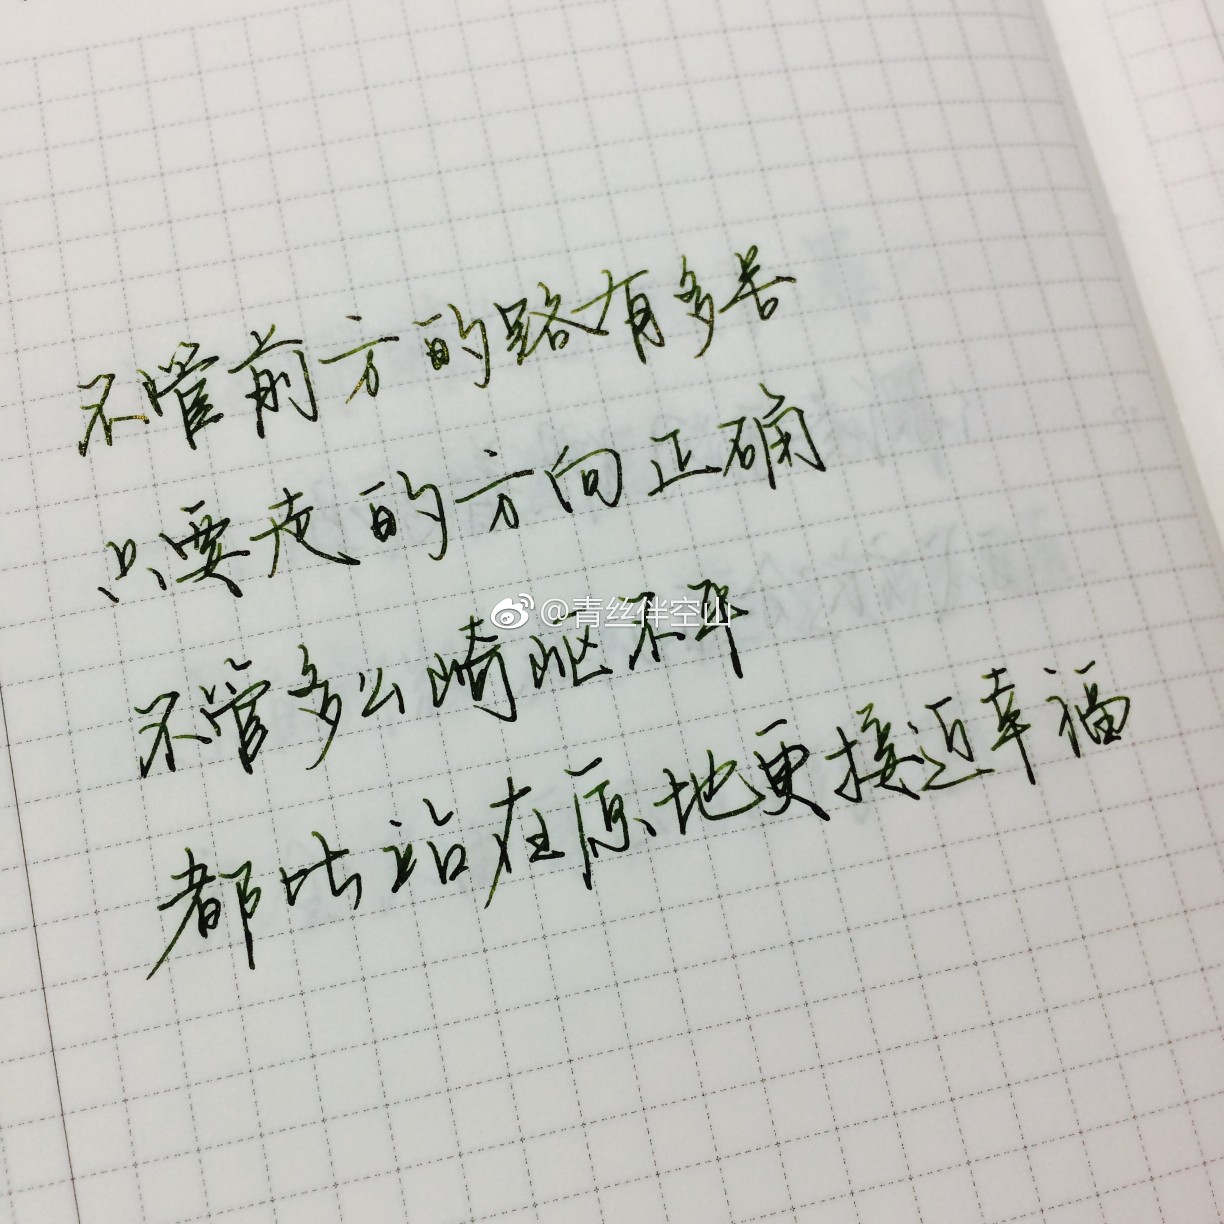 不管前方的路有多苦
只要走的方向正确
@青丝伴空山
不管多么崎岖不平
都比站在原地更接近幸福